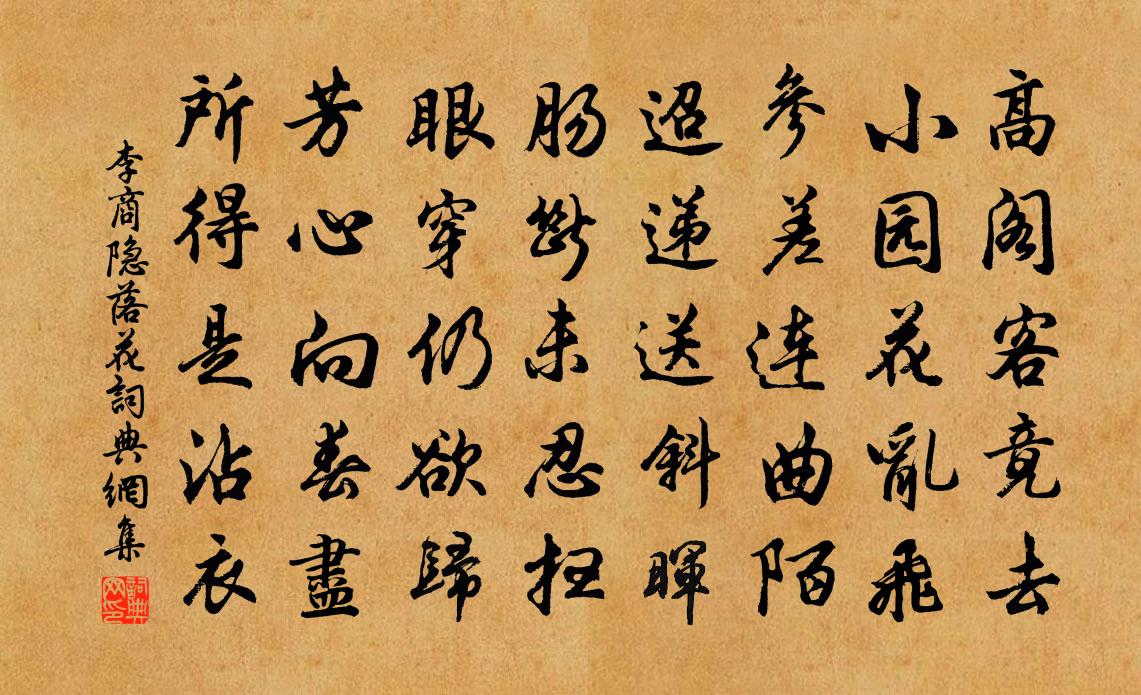 高阁客竟去
小园花亂飛
參差连曲陌
迢递送斜暉
肠斷未忍扫
眼穿仍欲歸
芳心向春盡
所得是沾衣
李商隐落花詞典網集
詞典网印